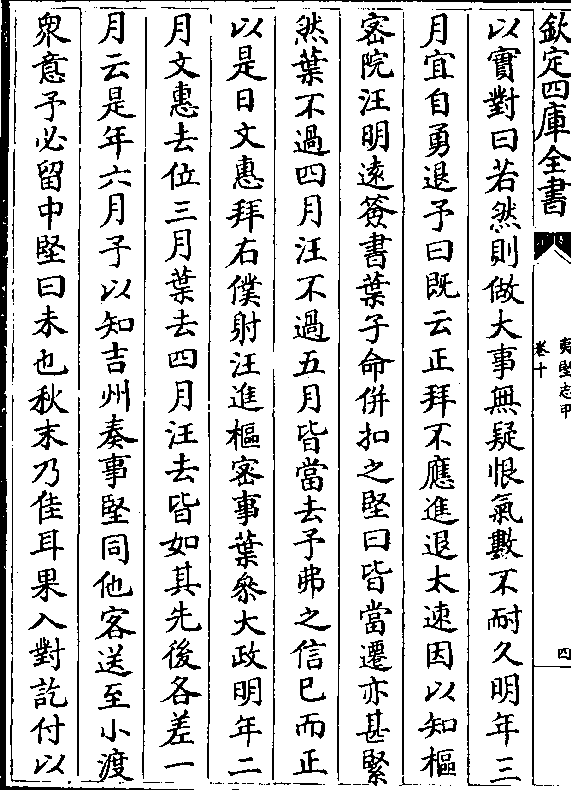 欽定四庫全書
夷堅志甲
卷十
四
以實對曰若然則做大事無疑恨氣數不耐久明年三
月宜自勇退予曰既云正拜不應進退太速因以知樞
密院汪明逺簽書葉子命併扣之堅曰皆當遷亦甚緊
然葉不過四月汪不過五月皆當去予弗之信已而正
以是日文惠拜右僕射汪進樞密事葉叅大政明年二
月文惠去位三月葉去四月汪去皆如其先後各差一
月云是年六月予以知吉州奏事堅同他客送至小渡
衆意予必留中堅曰未也秋末乃佳耳果入對訖付以